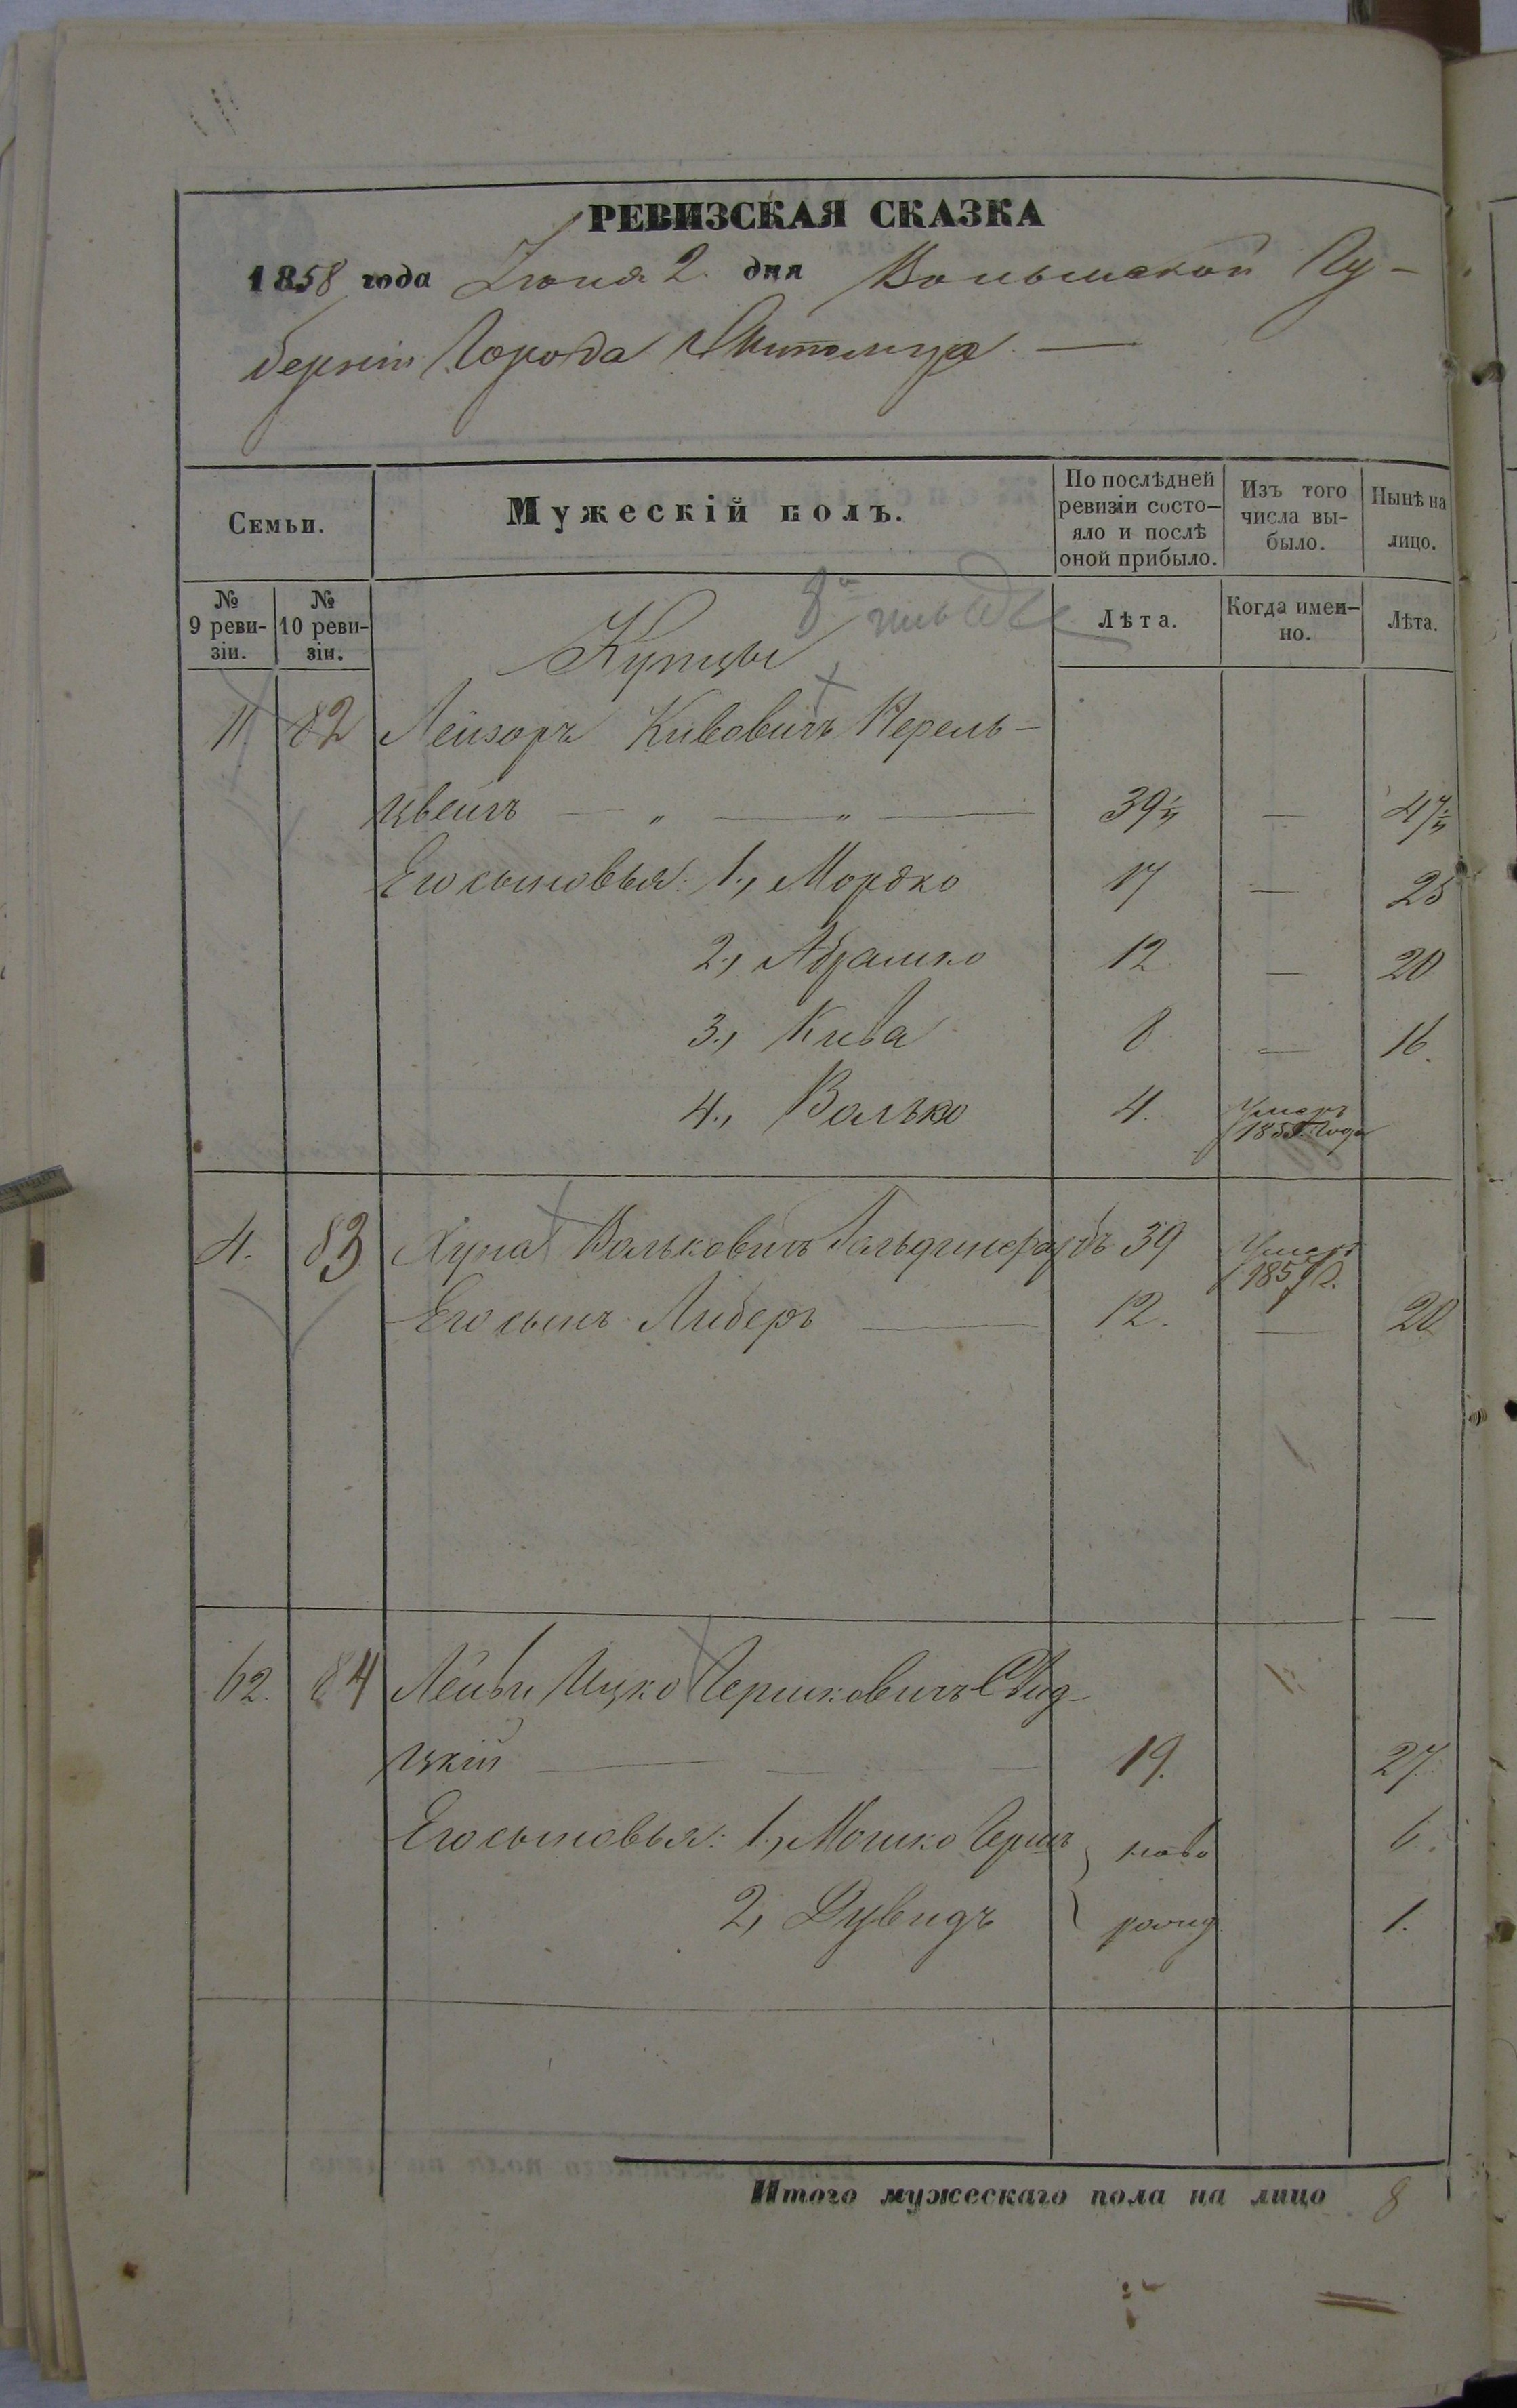 РЕВИЗСКАЯ СКАЗКА
1858 года Іюня 2 дня Волынской Гу-
берніи Города Житомира
Семьи.
Мужескій полъ.
По послѣдней ревизіи состо-яло и послѣ оной прибыло.
Изъ того числа вы-было.
Нынѣ на лицо.
№ 9 реви-зіи.
№ 10 реви-зіи.
Лѣта.
Когда имен-но.
Лѣта.
Купцы
11 82 Лейзоръ Кивовичъ Перель-
цвейгъ — " — " — 39½ — 47½
Его сыновья: 1., Мордко 17 — 25
2., Абрамко 12 — 20
3., Кива 8 — 16.
4., Волько 4. Умеръ
года
4. 83 Хуна Вольковичъ 39 Умеръ
1857 г.
Его сынъ Либеръ — 12. — 20
62. 84 Лейби Ицко Гершковичъ
цкій — 19. 27.
Его сыновья: 1., Мошко Гершъ ново 6.
2, Дувидъ рожд 1.
Итого мужескаго пола на лицо 8